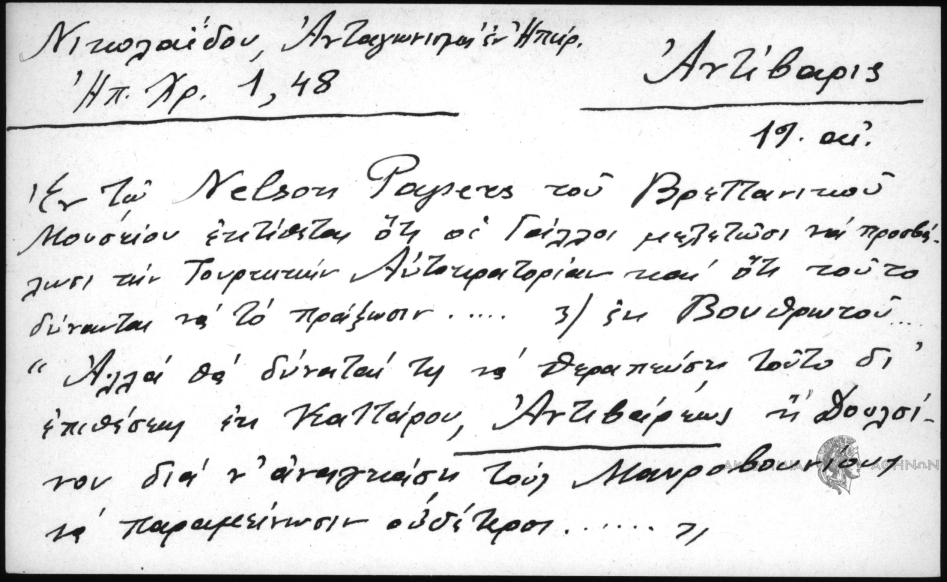 Νικολαΐδου, Ἀνταγωνισμοὶ ἐν Ἠπείρ.
Ἠπ. Χρ. 1, 48
Ἀντίβαρις
19. αἰ.
Ἐν τῷ Nelson Papers τοῦ Βρεττανικοῦ
Μουσείου ἐκτίθεται ὅτι οἱ Γάλλοι μελετῶσι νά προσβά-
λωσι τήν Τουρκικήν Αὐτοκρατορίαν καί ὅτι τοῦτο
δύνανται νά τό πράξωσιν ..... 3) ἐκ Βουθρωτοῦ ....
"Ἀλλά θά δύναταί τις νά θεραπεύσῃ τοῦτο δι'
ἐπιθέσεως ἐκ Καττάρου, Ἀντιβάρεως ἤ Δουλσί-
νου διά ν' ἀναγκάσῃ τούς Μαυροβουνίους
νά παραμείνωσιν οὐδέτεροι ......."
ΑΚΑΔΗΜΙΑ ΑΘΗΝΩΝ